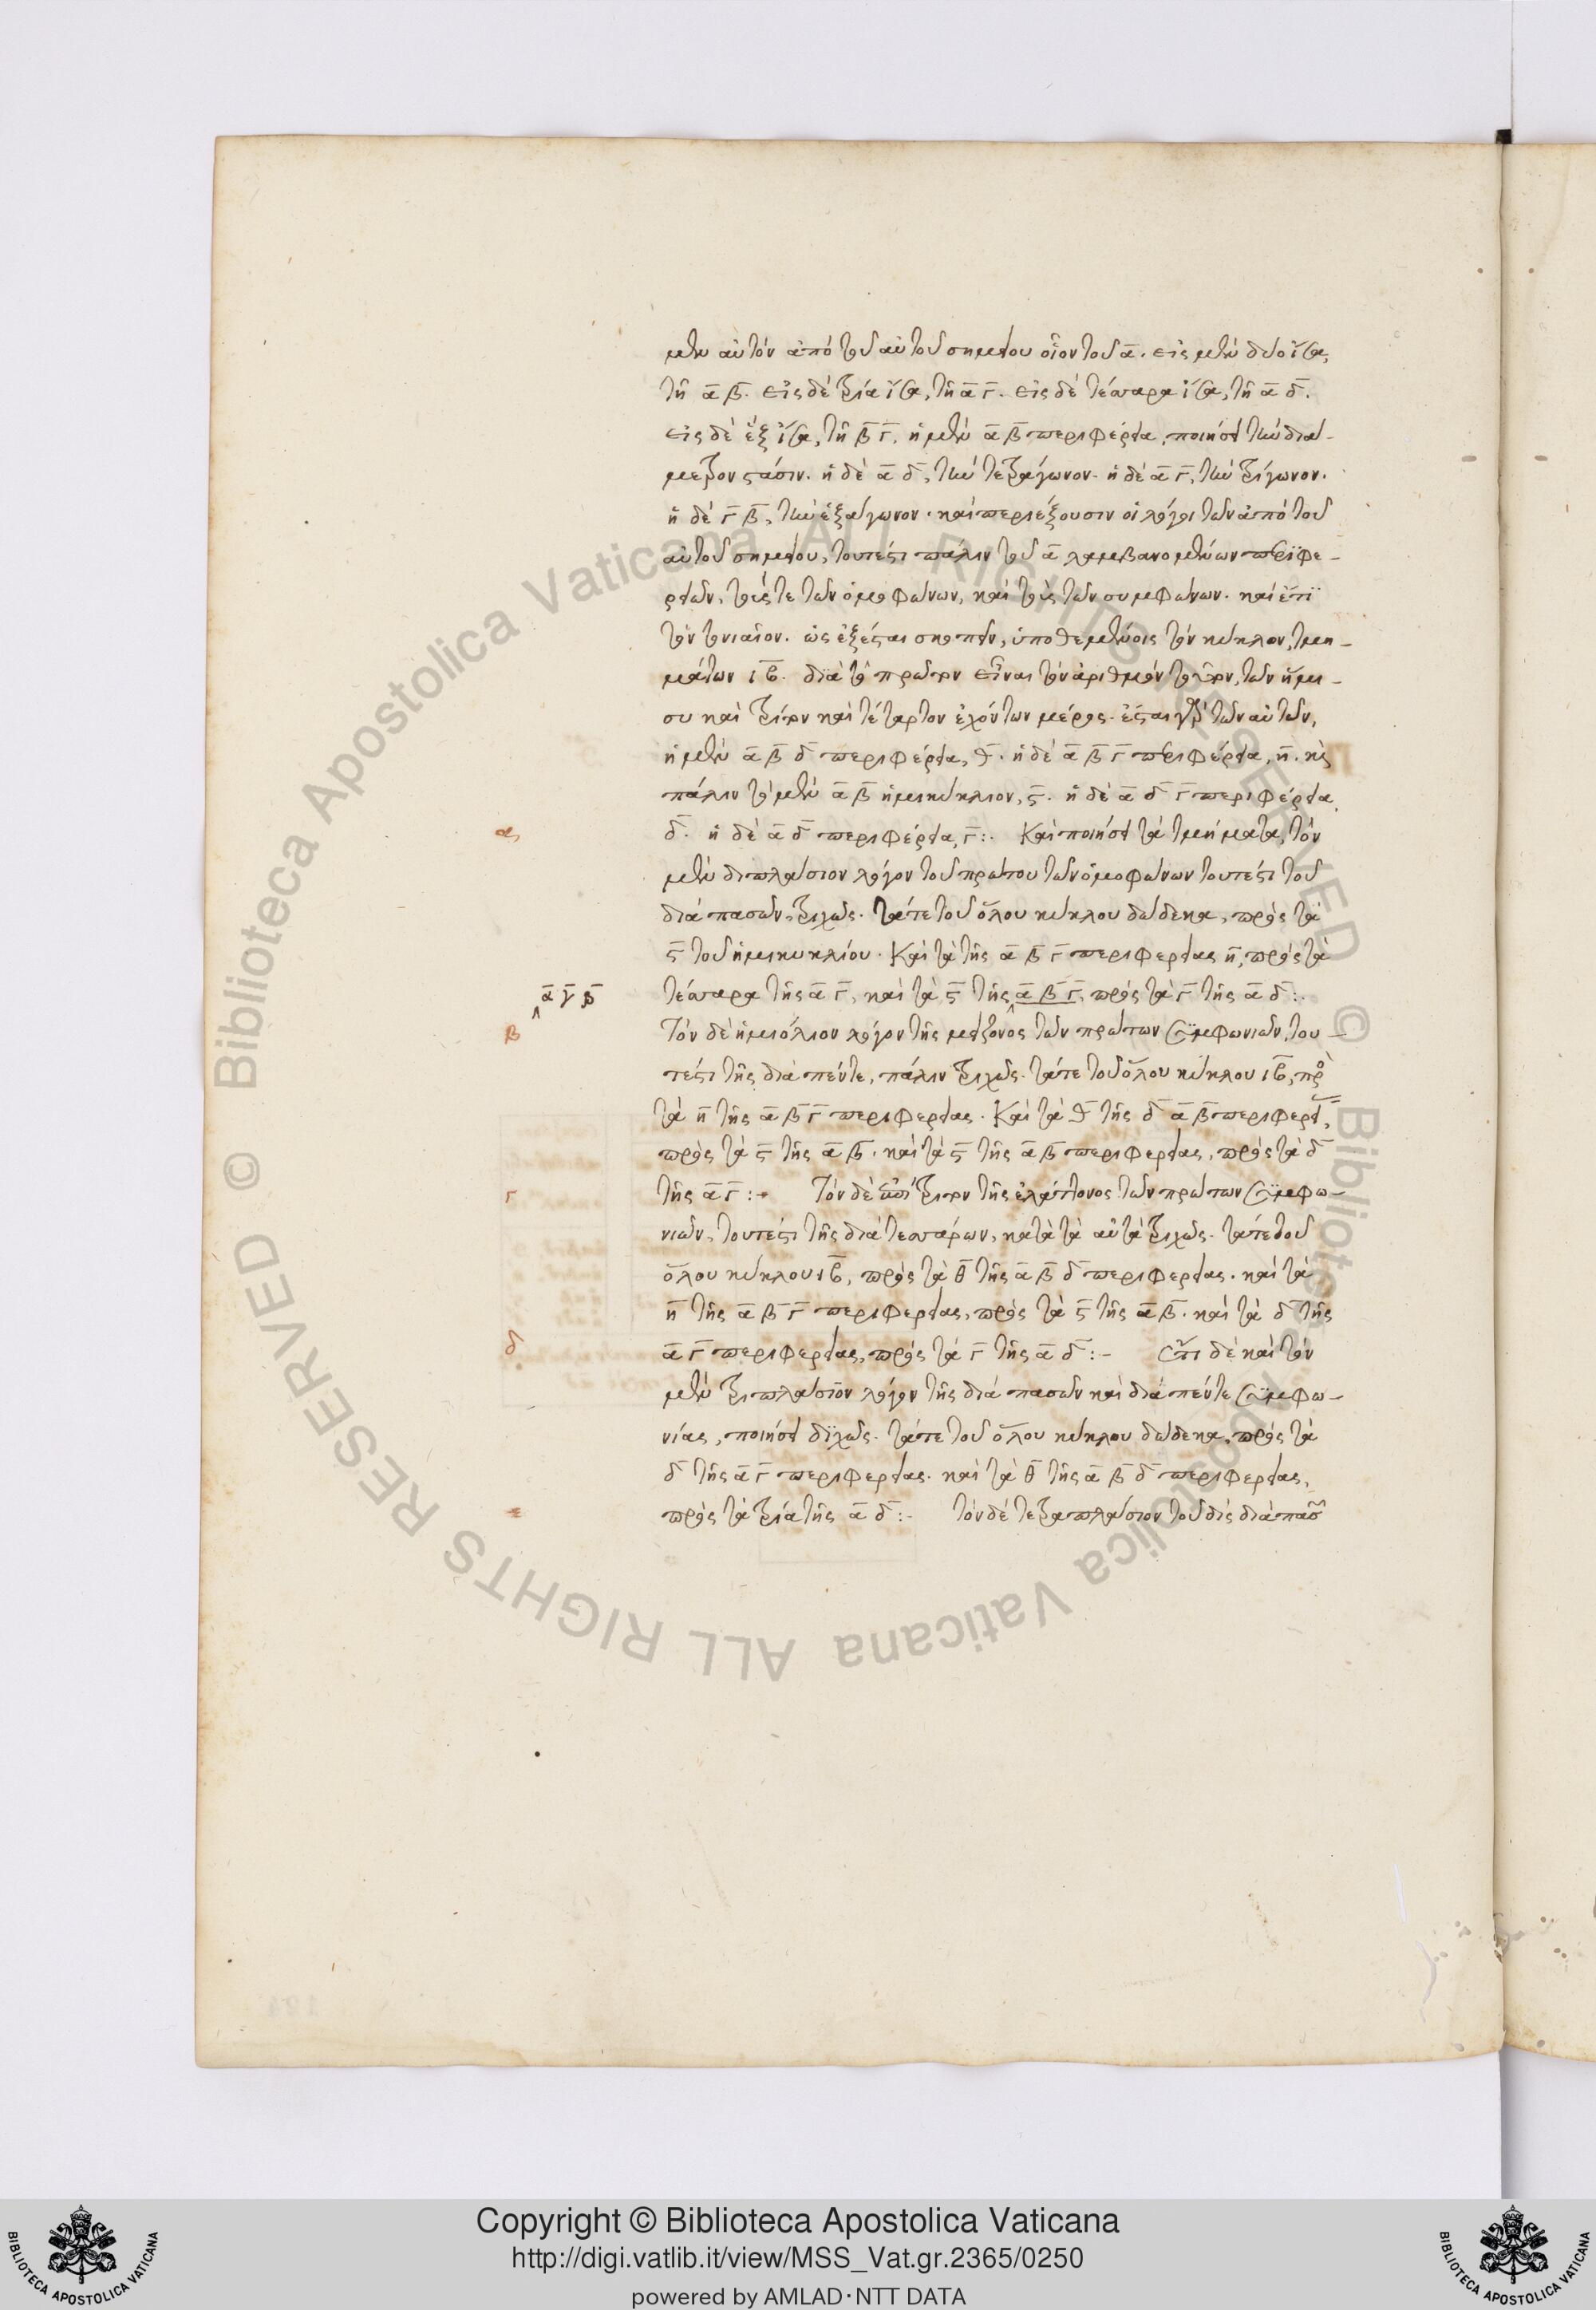 μεν αὐτὸν ἀπὸ τοῦ αὐτοῦ σημείου οἷον τοῦ α̅. εἰς μὲν δύο ἴσα,
τῇ α̅ β̅. εἰς δὲ τρία ἴσα, τῇ α̅ γ̅. εἰς δὲ τέσσαρα ἴσα, τῇ α̅ δ̅.
εἰς δὲ ἓξ ἴσα, τῇ β̅ γ̅. ἡ μὲν α̅ β̅ περιφέρεια, ποιήσει τὴν διά-
μετρον στάσιν. ἡ δὲ α̅ δ̅, τὴν τετράγωνον. ἡ δὲ α̅ γ̅, τὴν τρίγωνον.
ἡ δὲ γ̅ β̅, τὴν ἑξάγωνον. καὶ περιέξουσιν οἱ λόγοι τῶν ἀπὸ τοῦ
αὐτοῦ σημείου, τουτέστι πάλιν τοῦ α̅ λαμβανομένων περιφε-
ρειῶν, τούς τε τῶν ὁμοφώνων, καὶ τοὺς τῶν συμφώνων. καὶ ἔτι
τὸν τονιαῖον. ὡς ἐξέσται σκοπεῖν, ὑποθεμένοις τὸν κύκλον, τμη-
μάτων ιβ̅. διὰ τὸ πρῶτον εἶναι τὸν ἀριθμὸν τοῦτον, τῶν ἥμι-
συ καὶ τρίτον καὶ τέταρτον ἐχόντων μέρος. ἔσται γὰρ τῶν αὐτῶν,
ἡ μὲν α̅ β̅ δ̅ περιφέρεια, θ̅. ἡ δὲ α̅ β̅ γ̅ περιφέρεια, η̅. καὶ
πάλιν τὸ μὲν α̅ β̅ ἡμικύκλιον, ϛ̅. ἡ δὲ α̅ δ̅ γ̅ περιφέρεια,
α δ̅. ἡ δὲ α̅ δ̅ περιφέρεια, γ̅:. Καὶ ποιήσει τὰ τμήματα, τὸν
μὲν διπλάσιον λόγον τοῦ πρώτου τῶν ὁμοφώνων τουτέστι τοῦ
διὰ πασῶν, τριχῶς. τά τε τοῦ ὅλου κύκλου δώδεκα, πρὸς τὰ
ϛ̅ τοῦ ἡμικυκλίου. Καὶ τὰ τῆς α̅ β̅ γ̅ περιφερείας η̅, πρὸς τὰ
α̅ γ̅ β̅ τέσσαρα τῆς α̅ γ̅, καὶ τὰ ϛ̅ τῆς α̅ β̅ γ̅, πρὸς τὰ γ̅ τῆς α̅ δ̅:.
β Τὸν δὲ ἡμιόλιον λόγον τῆς μείζονος τῶν πρώτων συμφωνιῶν, του-
τέστι τῆς διὰ πέντε, πάλιν τριχῶς. τά τε τοῦ ὅλου κύκλου ιβ̅, πρὸς
τὰ η̅ τῆς α̅ β̅ γ̅ περιφερείας. Καὶ τὰ θ̅ τῆς δ̅ α̅ β̅ περιφερεί,
πρὸς τὰ ϛ̅ τῆς α̅ β̅. καὶ τὰ ϛ̅ τῆς α̅ β̅ περιφερείας, πρὸς τὰ δ̅
γ τῆς α̅ γ̅:. Τὸν δὲ ἐπίτριτον τῆς ἐλάττονος τῶν πρώτων συμφω-
νιῶν, τουτέστι τῆς διὰ τεσσάρων, κατὰ τὰ αὐτὰ τριχῶς. τά τε τοῦ
ὅλου κύκλου ιβ̅, πρὸς τὰ θ̅ τῆς α̅ β̅ δ̅ περιφερείας. καὶ τὰ
η̅ τῆς α̅ β̅ γ̅ περιφερείας, πρὸς τὰ ϛ̅ τῆς α̅ β̅. καὶ τὰ δ̅ τῆς
δ α̅ γ̅ περιφερείας, πρὸς τὰ γ̅ τῆς α̅ δ̅:- Ἔτι δὲ καὶ τὸν
μὲν τριπλάσιον λόγον τῆς διὰ πασῶν καὶ διὰ πέντε συμφω-
νίας, ποιήσει διχῶς. τά τε τοῦ ὅλου κύκλου δώδεκα, πρὸς τὰ
δ̅ τῆς α̅ γ̅ περιφερείας. καὶ τὰ θ̅ τῆς α̅ β̅ δ̅ περιφερείας,
ε πρὸς τὰ τρία τῆς α̅ δ̅:- τὸν δὲ τετραπλάσιον τοῦ δὶς διὰ πασῶν
Copyright © Biblioteca Apostolica Vaticana
http://digi.vatlib.it/view/MSS_Vat.gr.2365/0250
powered by AMLAD·NTT DATA
BIBLIOTECA APOSTOLICA VATICANA
BIBLIOTECA APOSTOLICA VATICANA
© Biblioteca Apostolica Vaticana ALL RIGHTS RESERVED
© Biblioteca Apostolica Vaticana ALL RIGHTS RESERVED